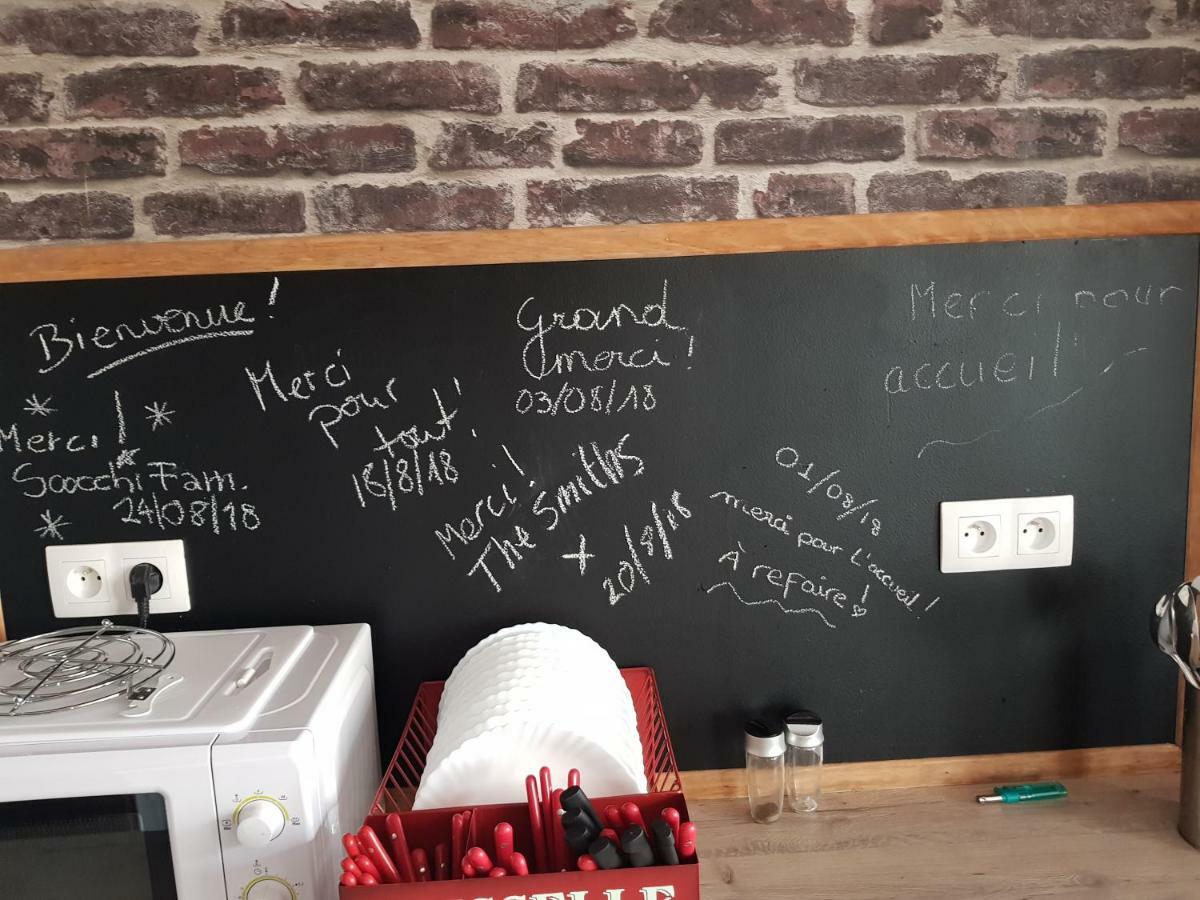 Bienvenue!
Merci!
Scocchi Fam.
24/08/18
Merci
pour
tout!
18/8/18
Grand
merci!
03/08/18
Merci!
The Smiths
+
20/8/18
01/08/18
merci pour l'accueil!
À refaire!
Merci pour
accueil!